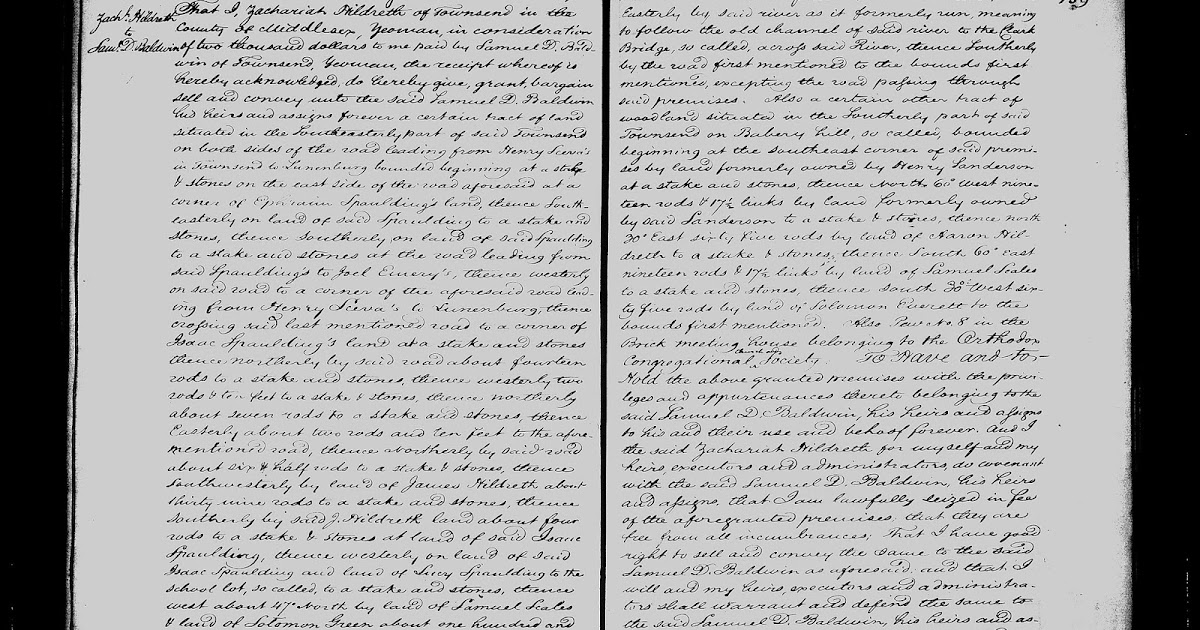 Zach.h Hildreth
to
Saml. D. Baldwin
That I, Zachariah Hildreth of Townsend in the
County of Middlesex, Yeoman, in consideration
of two thousand dollars to me paid by Samuel D. Bald-
win of Townsend, Yeoman, the receipt whereof is
hereby acknowledged, do hereby give, grant, bargain
sell and convey unto the said Samuel D. Baldwin
his heirs and assigns forever a certain tract of land
situated in the Southeasterly part of said Townsend
on both sides of the road leading from Henry Sceva's
in Townsend to Lunenburg bounded beginning at a stake
& stones on the east side of the road aforesaid at a
corner of Ephraim Spaulding's land, thence South-
easterly on land of said Spaulding to a stake and
stones, thence southerly on land of said Spaulding
to a stake and stones at the road leading from
said Spaulding's to Joel Emery's, thence westerly
on said road to a corner of the aforesaid road lead-
ing from Henry Sceva's to Lunenburg, thence
crossing said last mentioned road to a corner of
Isaac Spaulding's land at a stake and stones
thence northerly by said road about fourteen
rods to a stake and stones, thence westerly two
rods & ten feet to a stake & stones, thence northerly
about seven rods to a stake and stones, thence
Easterly about two rods and ten feet to the afore-
mentioned road, thence Northerly by said road
about six & half rods to a stake & stones, thence
Southwesterly by land of James Hildreth about
thirty nine rods to a stake and stones, thence
southerly by said J. Hildreth land about four
rods to a stake & stones at land of said Isaac
Spaulding, thence westerly on land of said
Isaac Spaulding and land of Lucy Spaulding to the
school lot, so called, to a stake and stones, thence
west about 47° North by land of Samuel Scales
& land of Solomon Green about one hundred and
139
Easterly by said river as it formerly run, meaning
to follow the old channel of said river to the Clark
Bridge, so called, across said River, thence Southerly
by the road first mentioned to the bounds first
mentioned, excepting the road passing through
said premises. Also a certain other tract of
woodland situated in the Southerly part of said
Townsend on Babery hill, so called, bounded
beginning at the southeast corner of said premi-
ses by land formerly owned by Henry Sanderson
at a stake and stones, thence North 60° West nine-
teen rods & 17½ links by land formerly owned
by said Sanderson to a stake & stones, thence north
30° East sixty five rods by land of Aaron Hil-
dreth to a stake & stones, thence South 60° east
nineteen rods & 17½ links by land of Samuel Scales
to a stake and stones, thence south 30° West six-
ty five rods by land of Solomon Everett to the
bounds first mentioned. Also Pew No. 8 in the
Brick meeting house belonging to the Orthodox
Congregational church and Society. To Have and to-
Hold the above granted premises with the privi-
leges and appurtenances thereto belonging to the
said Samuel D. Baldwin, his heirs and assigns
to his and their use and behoof forever. And I
the said Zachariah Hildreth for myself and my
heirs, executors and administrators, do covenant
with the said Samuel D. Baldwin, his heirs
and assigns, that I am lawfully seized in fee
of the aforegranted premises; that they are
free from all incumbrances; that I have good
right to sell and convey the same to the said
Samuel D. Baldwin as aforesaid: and that I
will and my heirs, executors and administra-
tors shall warrant and defend the same to
the said Samuel D. Baldwin, his heirs and as-